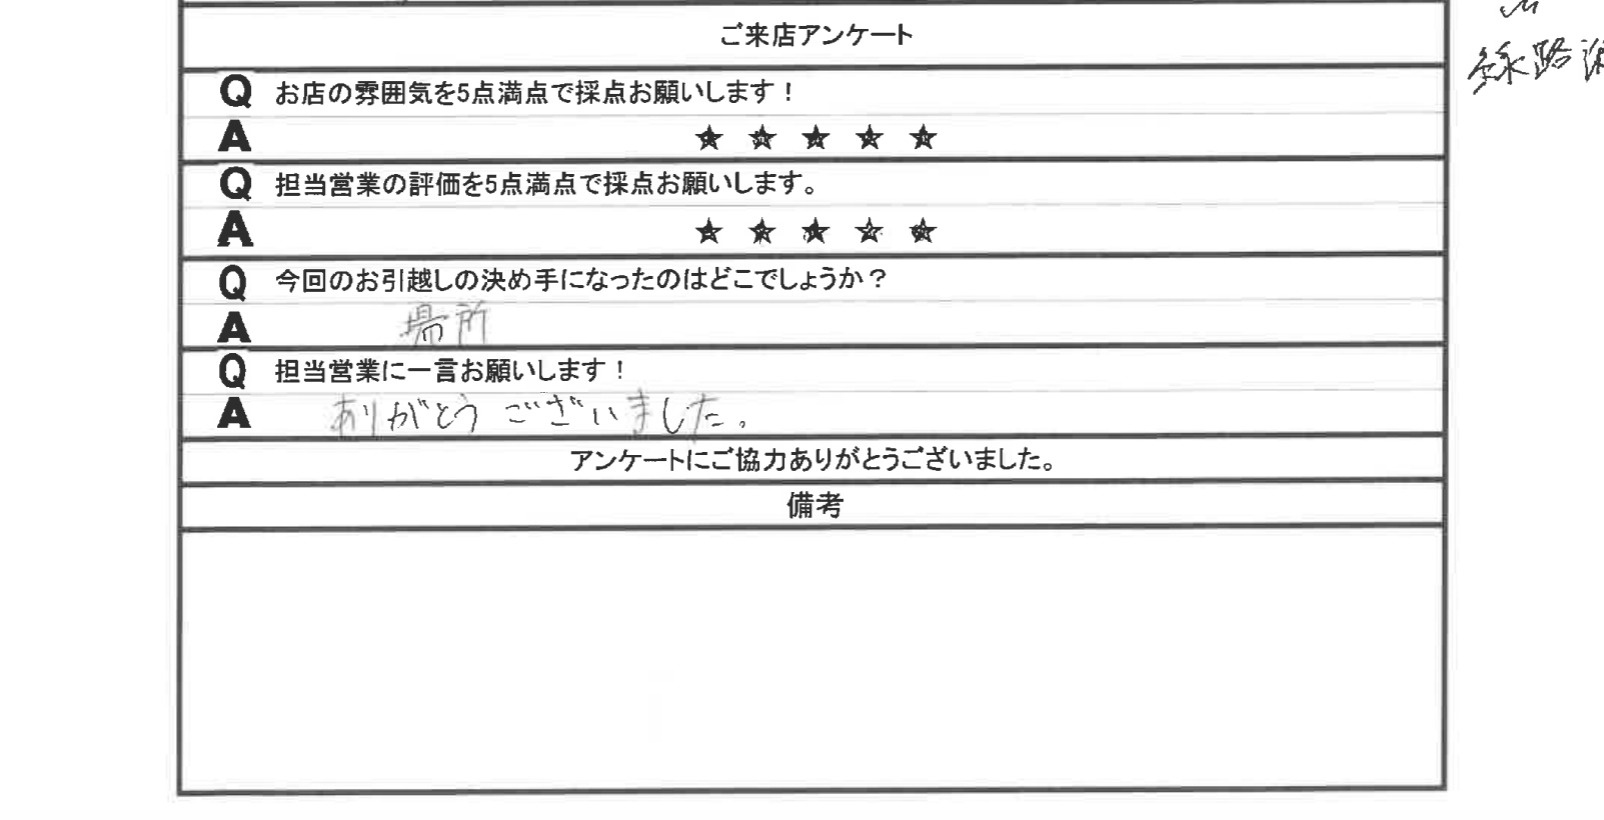 ご来店アンケート
Q お店の雰囲気を5点満点で採点お願いします！
A ★ ★ ★ ★ ★
Q 担当営業の評価を5点満点で採点お願いします。
A ★ ★ ★ ★ ★
Q 今回のお引越しの決め手になったのはどこでしょうか？
A 場所
Q 担当営業に一言お願いします！
A ありがとうございました。
アンケートにご協力ありがとうございました。
備考
線路